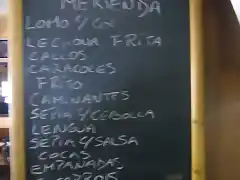 MERIENDA
LOMO Y
LECHONA FRITA
CALLOS
CARACOLES
FRITO
CAMINANTES
SEPIA Y CEBOLLA
LENGUA
SEPIA Y SALSA
COCAS
EMPANADAS